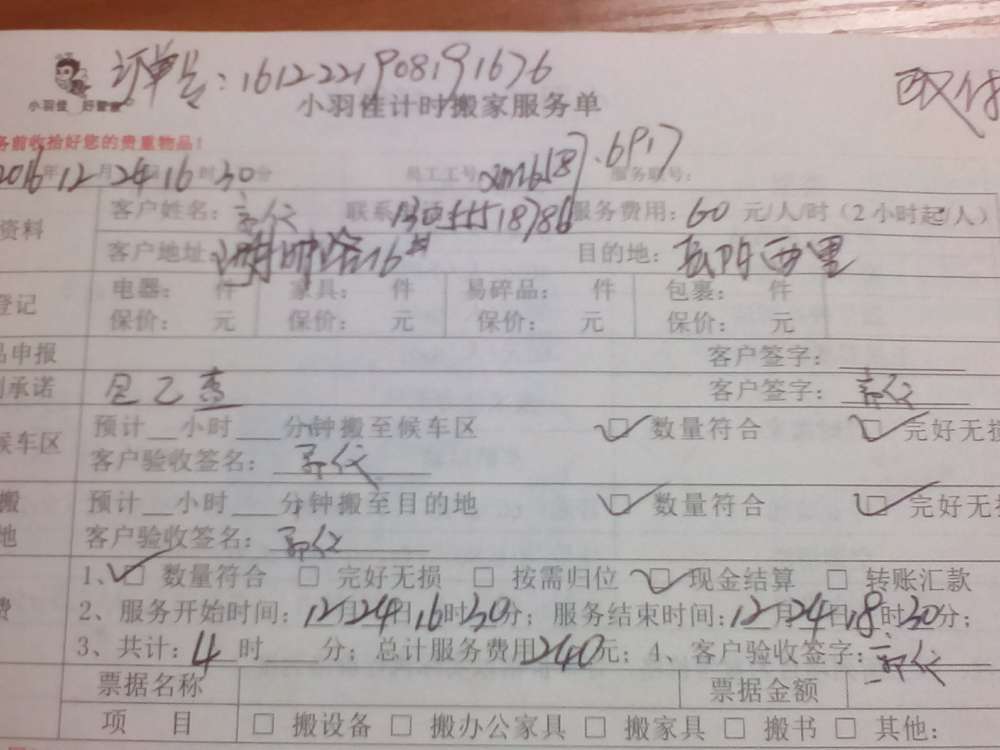 订单号:1612221908191676
小羽佳 好管家
小羽佳计时搬家服务单
务前收拾好您的贵重物品!
2016年12月24日16时30分 员工工号 服务联号: 6917
资料 客户姓名: 联系 13055518786 服务费用:60元/人/时(2小时起/人)
客户地址: 16# 目的地: 西里
登记 电器: 件 家具: 件 易碎品: 件 包裹: 件
保价: 元 保价: 元 保价: 元 保价: 元
品申报 客户签字:
承诺 已查 客户签字:
候车区 预计__小时___分钟搬至候车区 ☑数量符合 ☑完好无损
客户验收签名:
搬 预计__小时___分钟搬至目的地 ☑数量符合 ☑完好无损
地 客户验收签名:
1、☑数量符合 □完好无损 □按需归位 ☑现金结算 □转账汇款
费 2、服务开始时间:12月24日16时30分;服务结束时间:12月24日18时30分;
3、共计:4时___分;总计服务费用240元;4、客户验收签字:
票据名称 票据金额
项 目 □搬设备 □搬办公家具 □搬家具 □搬书 □其他: